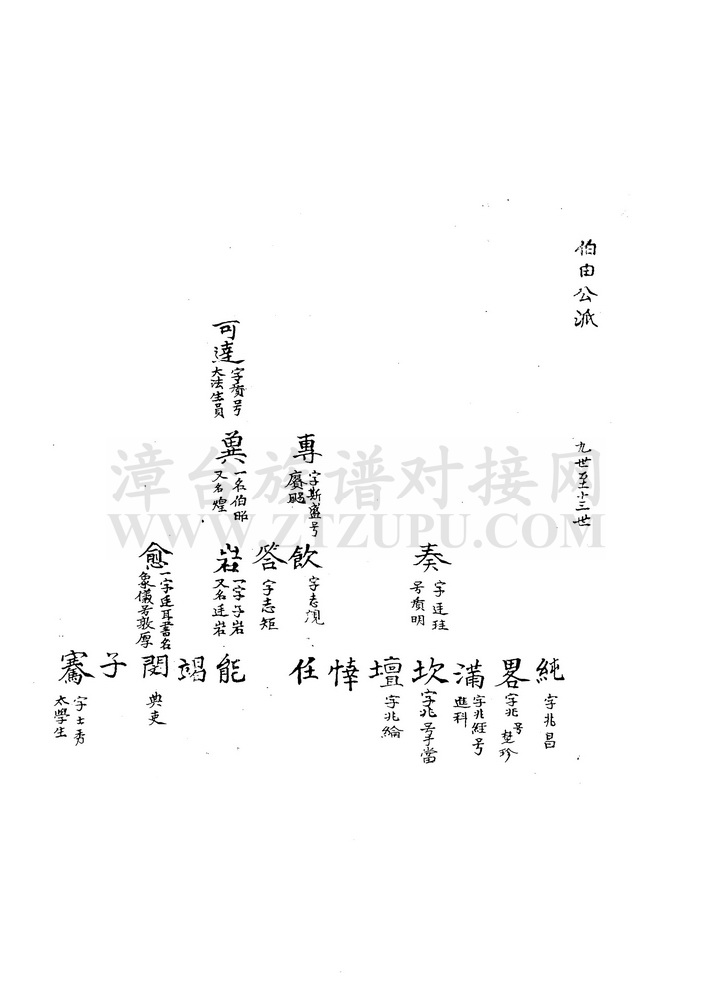 伯由公派
九世至十三世
可達
字贲号
大法生員
專
字斯盛号
賡颺
異
一名伯昭
又名煌
奏
字廷珪
号贲明
飲
字志
答
字志矩
岩
一字子岩
又名廷岩
愈
一字廷耳書名
象儀号敦厚
純
字兆昌
畧
字兆号
珍
滿
字兆經号
進科
坎
字兆号子當
壇
字兆綸
悻
任
能
竭
閔
典吏
子
騫
字士秀
太學生
漳台族谱对接网
WWW.ZTZUPU.COM